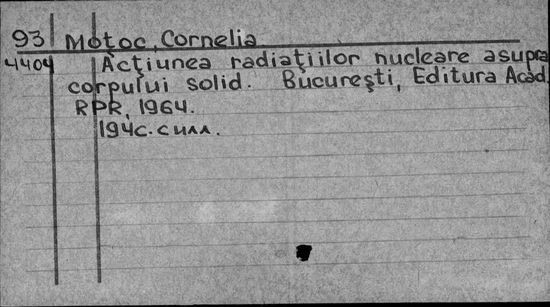 93 Moţoc, Cornelia
4404 Acţiunea radiaţiilor nucleare asupra
corpului solid. Bucureşti, Editura Acad.
RPR, 1964.
194с. с илл.